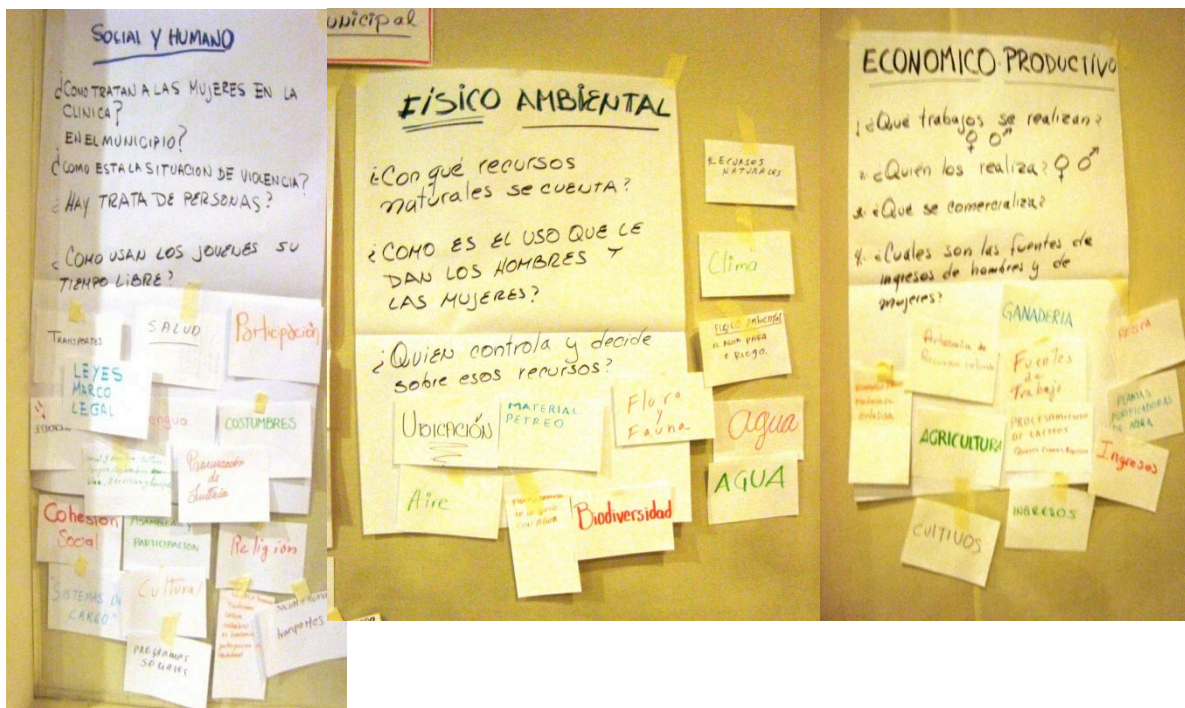 SOCIAL Y HUMANO
¿COMO TRATAN A LAS MUJERES EN LA
CLINICA?
EN EL MUNICIPIO?
¿COMO ESTA LA SITUACION DE VIOLENCIA?
¿HAY TRATA DE PERSONAS?
¿COMO USAN LOS JOVENES SU
TIEMPO LIBRE?
TRANSPORTES
SALUD
Participación
LEYES
MARCO
LEGAL
COSTUMBRES
Procuración
de
Justicia
Cohesion
Social
ASAMBLEA Y
PARTICIPACION
Religión
"SISTEMAS DE
CARGO"
Cultural
SOCIAL Y HUMANO
transportes
PROGRAMAS
SOCIALES
unicipal
FÍSICO AMBIENTAL
¿Con qué recursos
naturales se CUENTA?
¿COMO ES EL USO QUE LE
DAN LOS HOMBRES Y
LAS MUJERES?
¿QUIEN controla y decide
sobre esos recursos?
RECURSOS
NATURALES
Clima
AGUA PARA
RIEGO.
UBICACIÓN
MATERIAL
PETREO
Flora
y
Fauna
agua
Aire
CON AGUA
Biodiversidad
AGUA
ECONOMICO-PRODUCTIVO
1. ¿Qué trabajos se realizan?
♀ ♂
2. ¿Quién los realiza? ♀ ♂
3. ¿Qué se comercializa?
4. ¿Cuales son las fuentes de
ingresos de hombres y de
mujeres?
GANADERIA
PESCA
Artesanía de
Fuentes
de
Trabajo
PLANTAS
PURIFICADORAS
DE AGUA
AGRICULTURA
PROCESAMIENTO
DE LACTEOS
Ingresos
CULTIVOS
INGRESOS